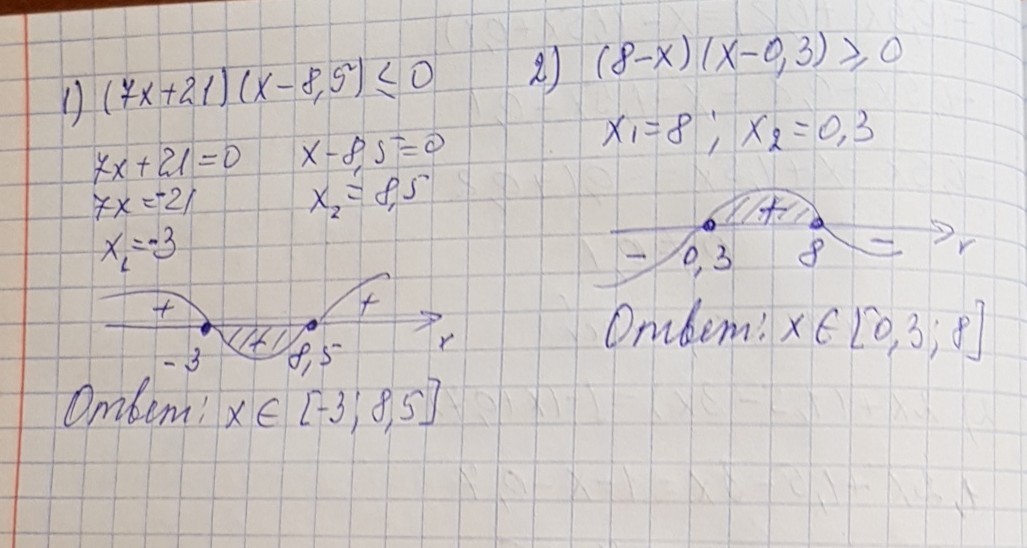 1) (7x+21)(x-8,5) ≤ 0
7x+21=0 x-8,5=0
7x=-21 x₂=8,5
x₁=-3
+ + +
-3 8,5 x
Ответ: x ∈ [-3; 8,5]
2) (8-x)(x-0,3) ≥ 0
x₁=8; x₂=0,3
+
- 0,3 8 - x
Ответ: x ∈ [0,3; 8]